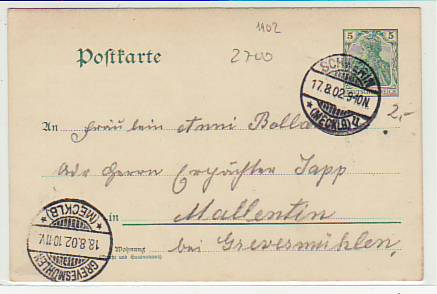 1102
2700
5 5
Postkarte
SCHWERIN
17.8.02.9-10N.
*(MECKLB)*
2,-
An Fräulein Anni
Adr Herrn Erbpächter Sapp
in Mallentin
bei Grevesmühlen
Wohnung
(Straße und Hausnummer)
GREVESMÜHLEN
18.8.02.10-11V.
*(MECKLB)*